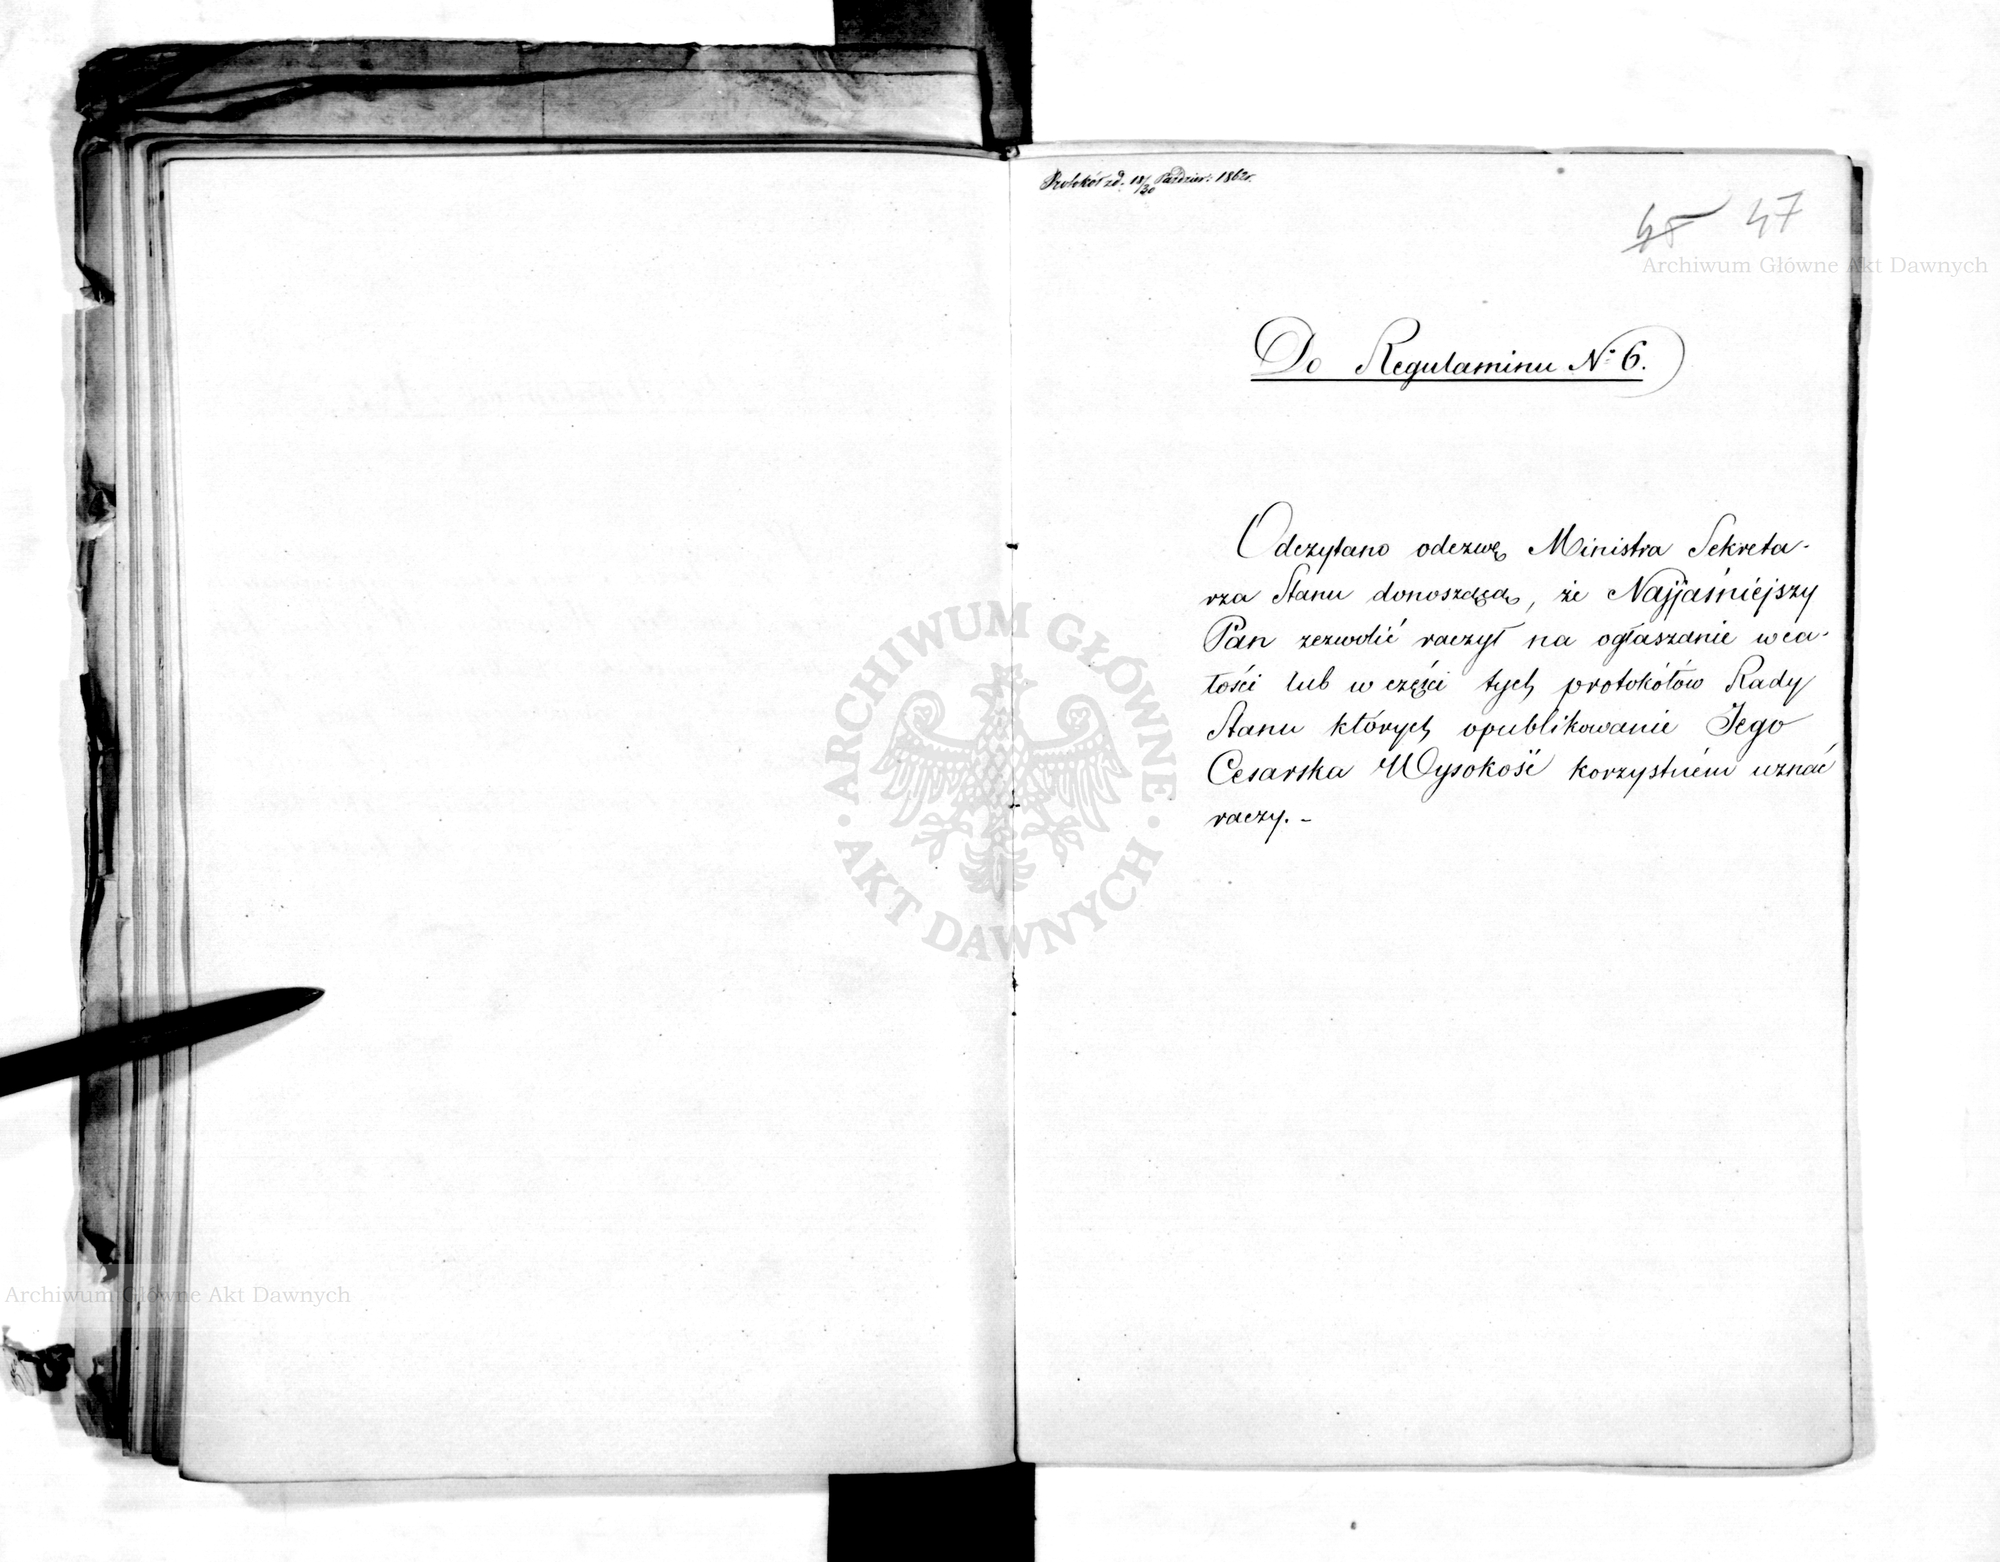 Protokół zd. 18/30 Paździer: 1862r.
45 47
Archiwum Główne Akt Dawnych
Do Regulaminu N: 6.
Odczytano odezwę Ministra Sekreta-
rza Stanu donoszącą, że Najjaśniejszy
Pan zezwolić raczył na ogłaszanie wca-
łości lub w części tych protokółów Rady
Stanu których opublikowanie Jego
Cesarska Wysokość korzystném uznać
raczy. –
ARCHIWUM GŁÓWNE
AKT DAWNYCH
Archiwum Główne Akt Dawnych